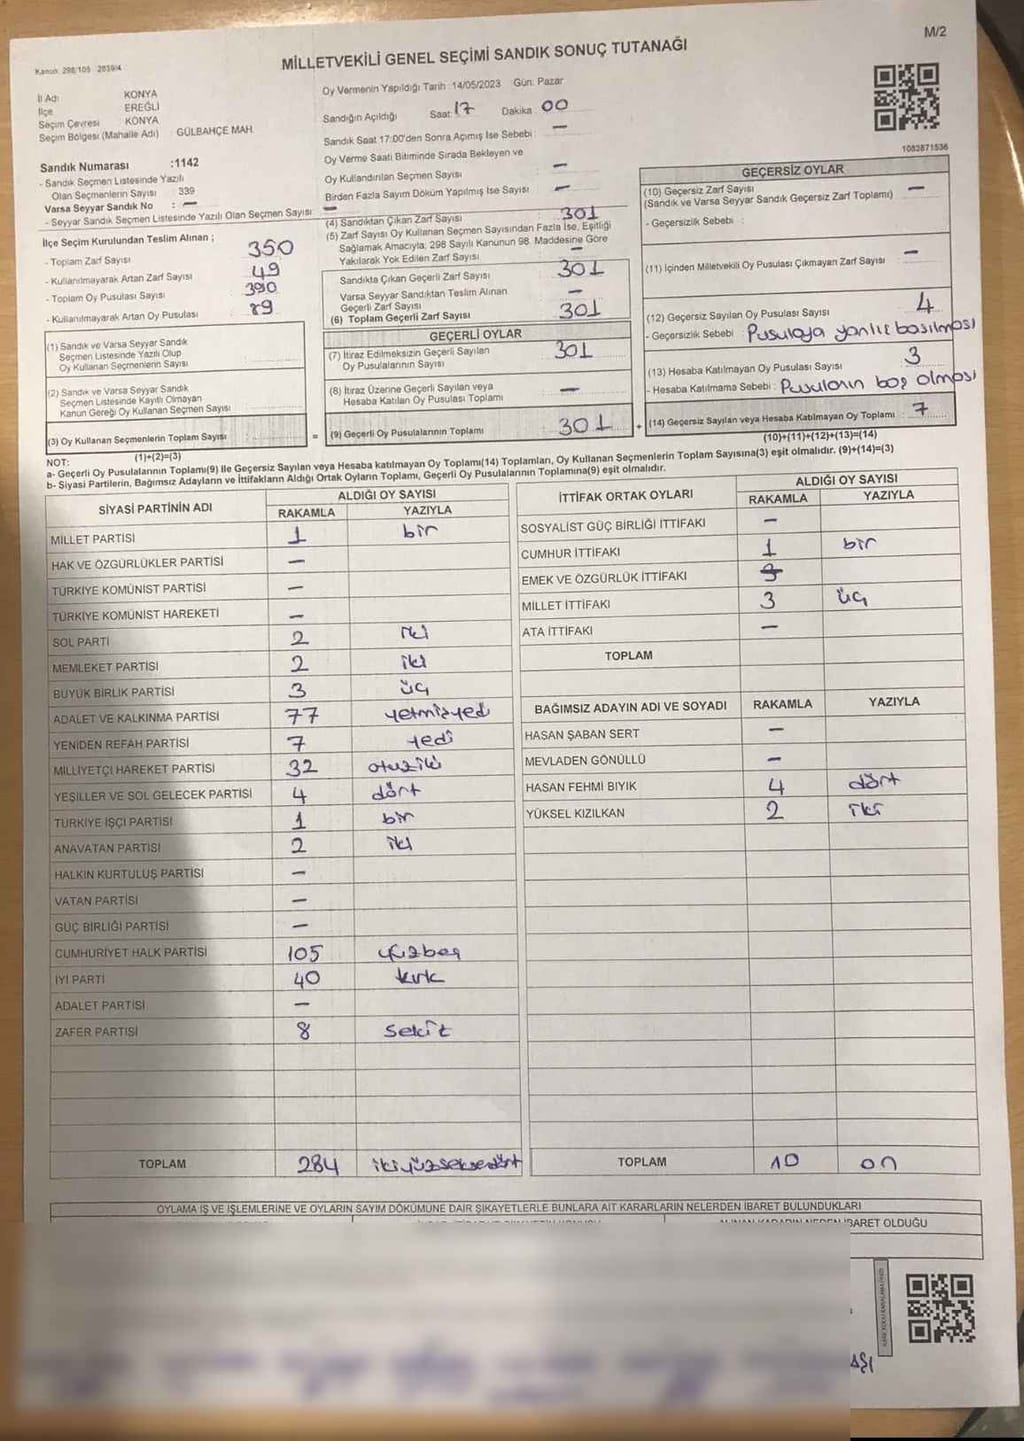 M/2
MİLLETVEKİLİ GENEL SEÇİMİ SANDIK SONUÇ TUTANAĞI
Kanun: 298/105 2839/4
İl Adı KONYA
İlçe EREĞLİ
Seçim Çevresi KONYA
Seçim Bölgesi (Mahalle Adı) : GÜLBAHÇE MAH.
Sandık Numarası :1142
- Sandık Seçmen Listesinde Yazılı
Olan Seçmenlerin Sayısı : 339
Varsa Seyyar Sandık No : –
- Seyyar Sandık Seçmen Listesinde Yazılı Olan Seçmen Sayısı –
İlçe Seçim Kurulundan Teslim Alınan ;
- Toplam Zarf Sayısı 350
- Kullanılmayarak Artan Zarf Sayısı 49
- Toplam Oy Pusulası Sayısı 390
- Kullanılmayarak Artan Oy Pusulası 89
(1) Sandık ve Varsa Seyyar Sandık
Seçmen Listesinde Yazılı Olup
Oy Kullanan Seçmenlerin Sayısı
(2) Sandık ve Varsa Seyyar Sandık
Seçmen Listesinde Kayıtlı Olmayan
Kanun Gereği Oy Kullanan Seçmen Sayısı
(3) Oy Kullanan Seçmenlerin Toplam Sayısı
(1)+(2)=(3)
Oy Vermenin Yapıldığı Tarih : 14/05/2023 Gün: Pazar
Sandığın Açıldığı Saat: 17 Dakika 00
Sandık Saat 17:00'den Sonra Açımış İse Sebebi : –
Oy Verme Saati Bitiminde Sırada Bekleyen ve
Oy Kullandırılan Seçmen Sayısı –
Birden Fazla Sayım Döküm Yapılmış İse Sayısı –
(4) Sandıktan Çıkan Zarf Sayısı : 301
(5) Zarf Sayısı Oy Kullanan Seçmen Sayısından Fazla İse, Eşitliği
Sağlamak Amacıyla, 298 Sayılı Kanunun 98. Maddesine Göre
Yakılarak Yok Edilen Zarf Sayısı –
Sandıkta Çıkan Geçerli Zarf Sayısı : 301
Varsa Seyyar Sandıktan Teslim Alınan
Geçerli Zarf Sayısı –
(6) Toplam Geçerli Zarf Sayısı : 301
GEÇERLİ OYLAR
(7) İtiraz Edilmeksizin Geçerli Sayılan
Oy Pusulalarının Sayısı 301
(8) İtiraz Üzerine Geçerli Sayılan veya
Hesaba Katılan Oy Pusulası Toplamı –
= (9) Geçerli Oy Pusulalarının Toplamı 301 +
1083871536
GEÇERSİZ OYLAR
(10) Geçersiz Zarf Sayısı –
(Sandık ve Varsa Seyyar Sandık Geçersiz Zarf Toplamı)
- Geçersizlik Sebebi :
(11) İçinden Milletvekili Oy Pusulası Çıkmayan Zarf Sayısı –
(12) Geçersiz Sayılan Oy Pusulası Sayısı 4
- Geçersizlik Sebebi : Pusulaya yanlış basılması
(13) Hesaba Katılmayan Oy Pusulası Sayısı 3
- Hesaba Katılmama Sebebi : Pusulanın boş olması
(14) Geçersiz Sayılan veya Hesaba Katılmayan Oy Toplamı : 7
(10)+(11)+(12)+(13)=(14)
NOT:
a- Geçerli Oy Pusulalarının Toplamı(9) ile Geçersiz Sayılan veya Hesaba katılmayan Oy Toplamı(14) Toplamları, Oy Kullanan Seçmenlerin Toplam Sayısına(3) eşit olmalıdır. (9)+(14)=(3)
b- Siyasi Partilerin, Bağımsız Adayların ve İttifakların Aldığı Ortak Oyların Toplamı, Geçerli Oy Pusulalarının Toplamına(9) eşit olmalıdır.
SİYASİ PARTİNİN ADI ALDIĞI OY SAYISI
RAKAMLA YAZIYLA
MİLLET PARTİSİ 1 bir
HAK VE ÖZGÜRLÜKLER PARTİSİ –
TÜRKİYE KOMÜNİST PARTİSİ –
TÜRKİYE KOMÜNİST HAREKETİ –
SOL PARTİ 2 iki
MEMLEKET PARTİSİ 2 iki
BÜYÜK BİRLİK PARTİSİ 3 üç
ADALET VE KALKINMA PARTİSİ 77 yetmişyedi
YENİDEN REFAH PARTİSİ 7 yedi
MİLLİYETÇİ HAREKET PARTİSİ 32 otuziki
YEŞİLLER VE SOL GELECEK PARTİSİ 4 dört
TÜRKİYE İŞÇİ PARTİSİ 1 bir
ANAVATAN PARTİSİ 2 iki
HALKIN KURTULUŞ PARTİSİ –
VATAN PARTİSİ –
GÜÇ BİRLİĞİ PARTİSİ –
CUMHURİYET HALK PARTİSİ 105 yüzbeş
İYİ PARTİ 40 kırk
ADALET PARTİSİ –
ZAFER PARTİSİ 8 sekiz
TOPLAM 284 ikiyüzseksendört
İTTİFAK ORTAK OYLARI ALDIĞI OY SAYISI
RAKAMLA YAZIYLA
SOSYALİST GÜÇ BİRLİĞİ İTTİFAKI –
CUMHUR İTTİFAKI 1 bir
EMEK VE ÖZGÜRLÜK İTTİFAKI
MİLLET İTTİFAKI 3 üç
ATA İTTİFAKI –
TOPLAM
BAĞIMSIZ ADAYIN ADI VE SOYADI RAKAMLA YAZIYLA
HASAN ŞABAN SERT –
MEVLADEN GÖNÜLLÜ –
HASAN FEHMİ BIYIK 4 dört
YÜKSEL KIZILKAN 2 iki
TOPLAM 10 on
OYLAMA İŞ VE İŞLEMLERİNE VE OYLARIN SAYIM DÖKÜMÜNE DAİR ŞİKAYETLERLE BUNLARA AİT KARARLARIN NELERDEN İBARET BULUNDUKLARI
İBARET OLDUĞU